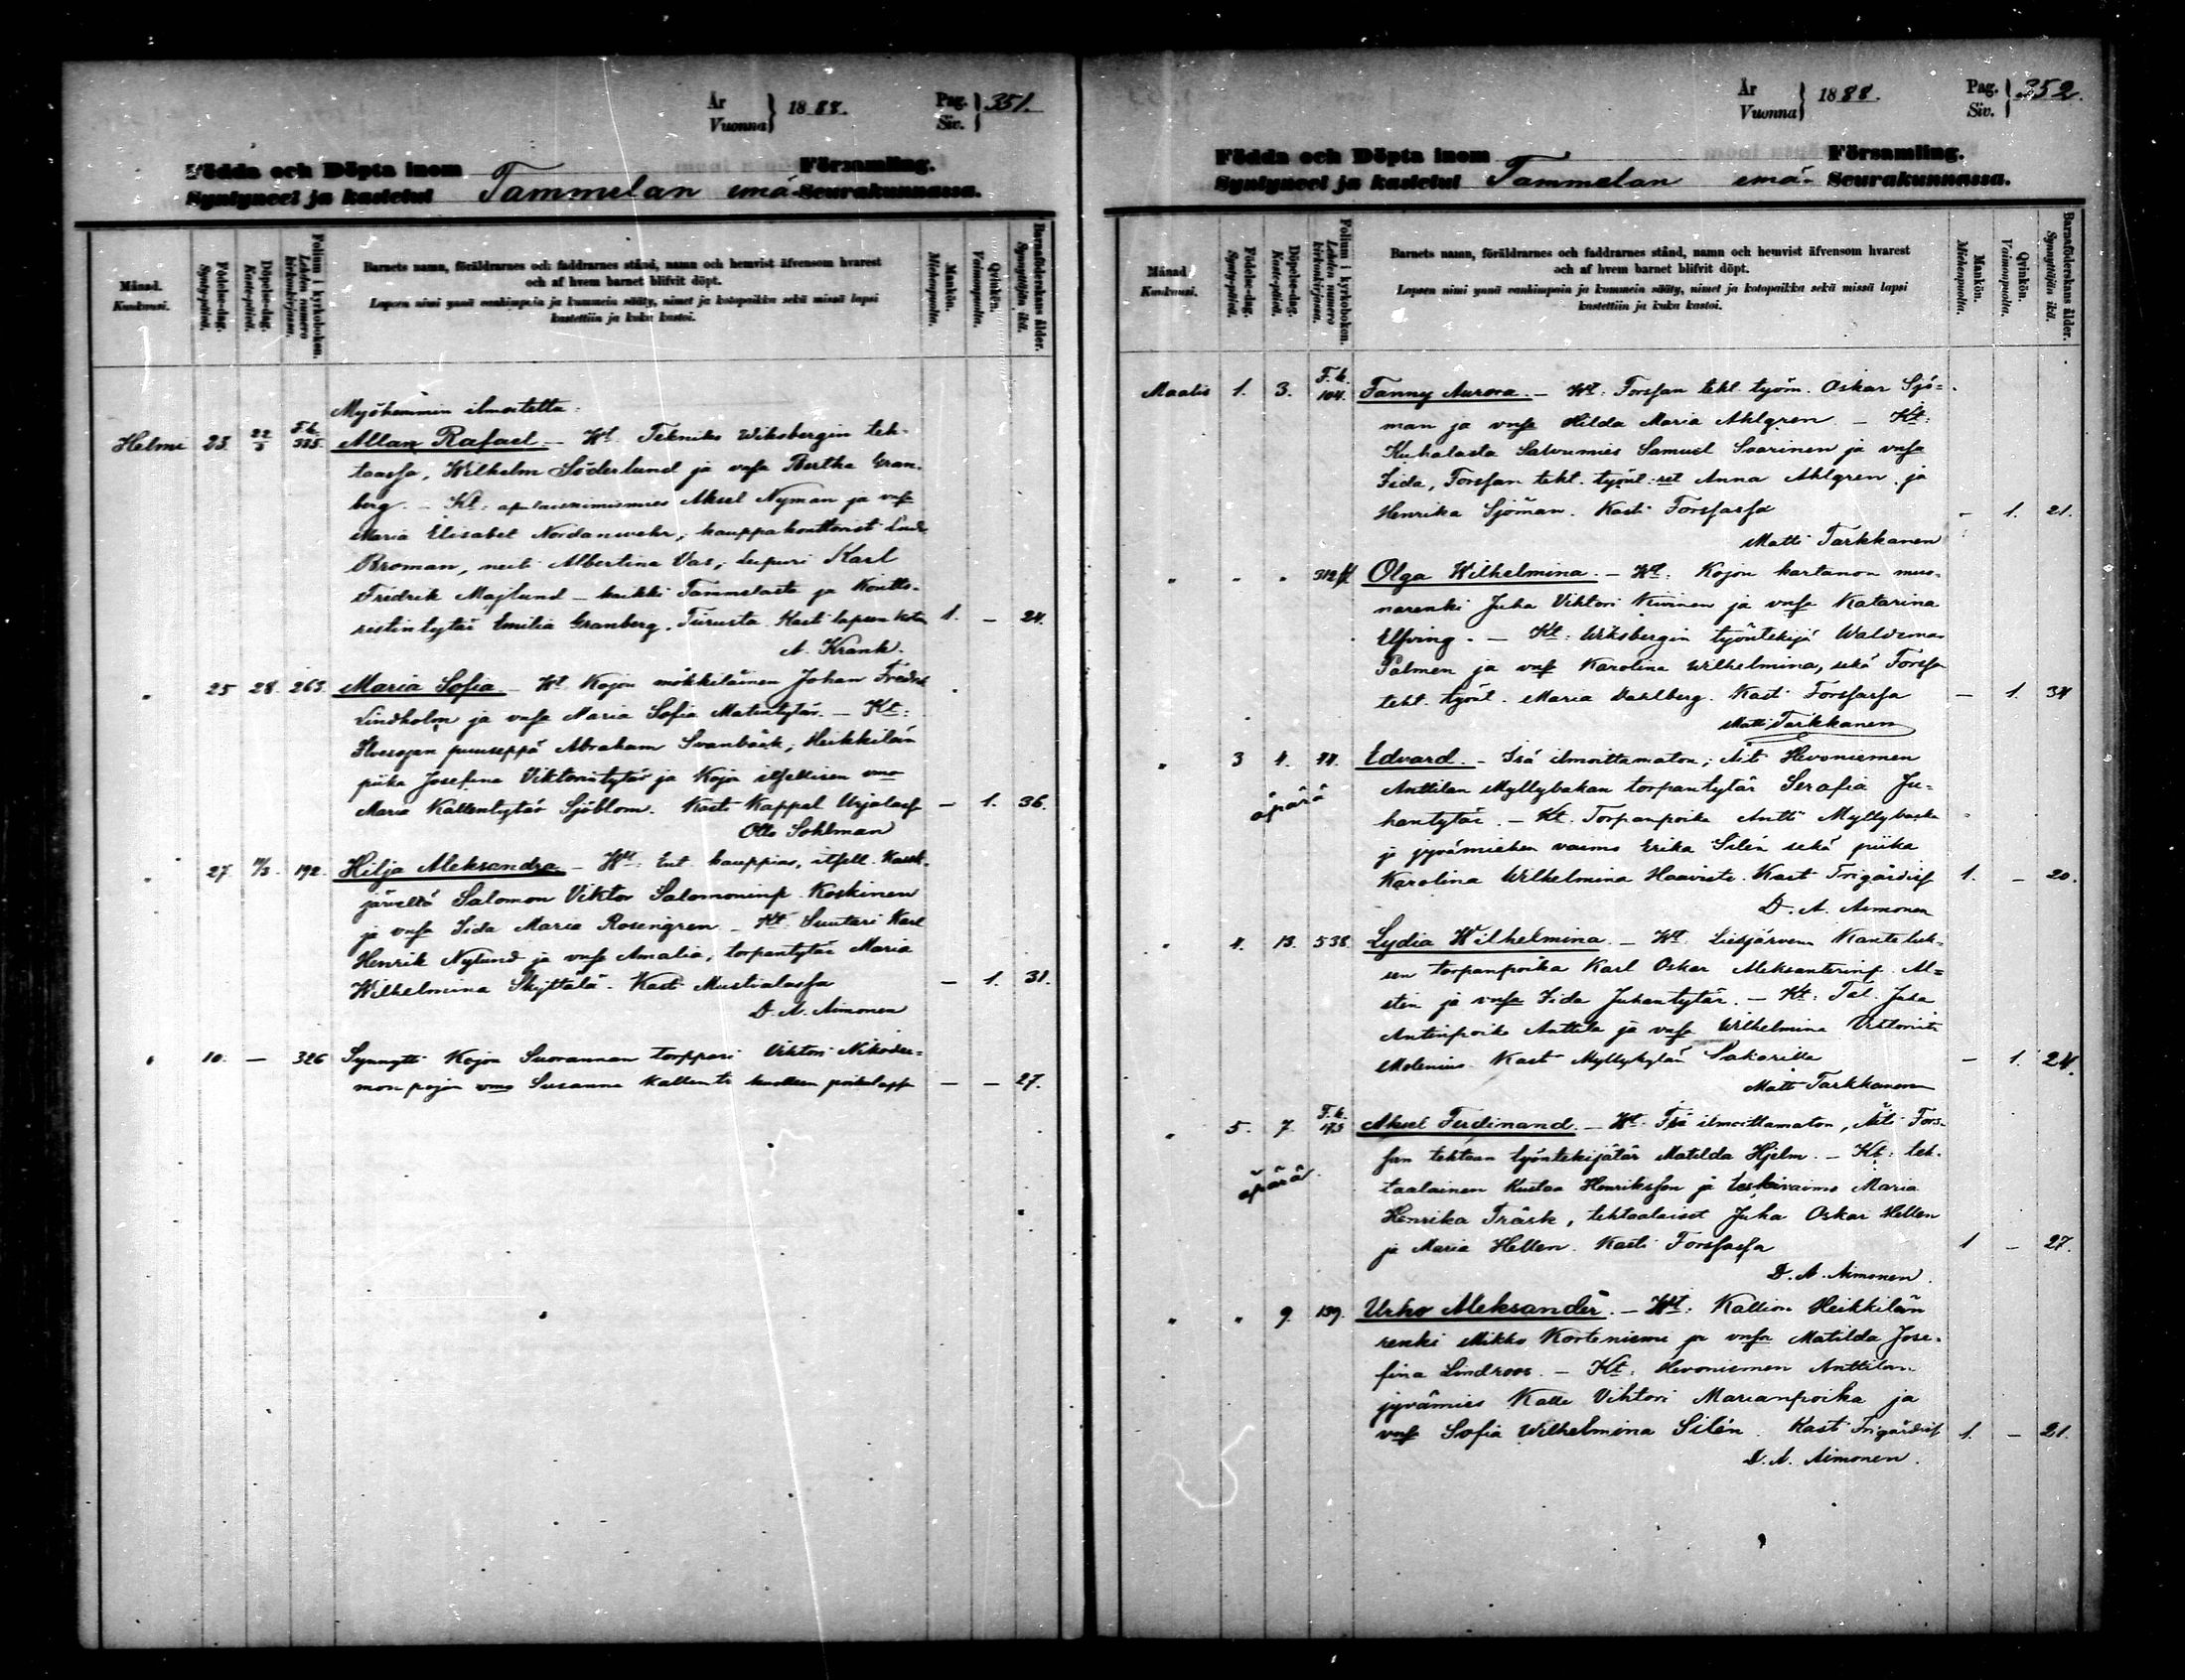 År
Vuonna } 1888.
Pag.
Siv. } 351.
Födda och Döpta inom Församling.
Syntyneet ja kastetut Tammelan emä Seurakunnassa.
Månad. Kuukausi.
Födelse-dag. Synty-päivä.
Döpelse-dag. Kaste-päivä.
Folium i kyrkoboken. Lehden numero kirkonkirjassa.
Barnets namn, föräldrarnes och faddrarnes stånd, namn och hemvist äfvensom hvarest
och af hvem barnet blifvit döpt.
Lapsen nimi ynnä vanhimpain ja kummein sääty, nimet ja kotopaikka sekä missä lapsi
kastettiin ja kuka kastoi.
Mankön. Miehenpuolta.
Qvinkön. Vaimonpuolta.
Barnaföderskans ålder. Synnyttäjän ikä.
Myöhemmin ilmoitettu:
Helmi 23. 22/3 F.k. 325. Allan Rafael. – Wt. Tekniko Wiksbergin teh-
taassa, Wilhelm Söderlund ja vmsa Bertha Gran-
berg. – Kt: apulaisnimismies Aksel Nyman ja vmsa
Maria Elisabet Nordanwehr, kauppakonttorist
Broman, neiti Albertina Vas, leipuri Karl
Fredrik Majlund – kaikki Tammelasta ja Kontto-
ristintytär Emilia Granberg, Turusta. Kast: lapsen koton 1. – 24.
A. Krank.
" 25 28. 263. Maria Sofia – Wt. Kojon mökkiläinen Johan Fredrik
Lindholm ja vmsa Maria Sofia Matintytär. – Kt:
puuseppä Abraham Svanbäck, Heikkilän
piika Josefina Viktorintytär ja Kojo itsellisen vmo
Maria Kallentytär Sjöblom. Kast. Kappal. Urjalasta – 1. 36.
Otto Sohlman
" 27. 192. Hilja Aleksandra – Wt: Ent. kauppias, itsell. Kauk-
järveltä Salomon Viktor Salomoninp. Koskinen
ja vmsa Iida Maria Rosengren – Kt: Suutari Karl
Henrik Nylund ja vmsa Amalia, torpantytär Maria
Wilhelmina Skyttälä. Kast. Mustialassa – 1. 31.
D. A. Aimonen
" 10. – 326 Synnytti Kojon Suorannan torppari Viktori Nikode-
mon pojan vmo Susanna Kallent: kuolleen poikalapse – – 27.
År
Vuonna } 1888.
Pag.
Siv. } 352.
Födda och Döpta inom Församling.
Syntyneet ja kastetut Tammelan emä- Seurakunnassa.
Månad Kuukausi.
Födelse-dag. Synty-päivä.
Döpelse-dag. Kaste-päivä.
Folium i kyrkoboken. Lehden numero kirkonkirjassa.
Barnets namn, föräldrarnes och faddrarnes stånd, namn och hemvist äfvensom hvarest
och af hvem barnet blifvit döpt.
Lapsen nimi ynnä vanhimpain ja kummein sääty, nimet ja kotopaikka sekä missä lapsi
kastettiin ja kuka kastoi.
Mankön. Miehenpuolta.
Qvinkön. Vaimonpuolta.
Barnaföderskans ålder. Synnyttäjän ikä.
Maalis 1. 3. F.k. 104. Fanny Aurora. – Wt: Forssan teht. työm. Oskar Sjö-
man ja vmsa Hilda Maria Ahlgren. – Kt:
Kuhalasta Salvumies Samuel Saarinen ja vmsa
Iida, Forssan teht. työnt:ret Anna Ahlgren ja
Henrika Sjöman. Kast: Forssassa – 1. 21.
Matti Tarkkanen
" " " 312 Olga Wilhelmina. – Wt: Kojon kartanon muo-
narenki Juha Viktori Niinen ja vmsa Katarina
Elfving. – Kt: Wiksbergin työntekijä Waldemar
Palmen ja vmsa Karolina Wilhelmina, sekä Forssan
teht. työnt. Maria Dahlberg. Kast: Forssassa – 1. 34
Matti Tarkkanen
" 3 4. 44. Edvard. – Isä ilmoittamaton; Äiti Hevoniemen
Anttilan Myllybakan torpantytär Serafia Ju-
äpärä
hantytär. – Kt. Torpanpoika Antti Myllybacka
ja jyvämiehen vaimo Erika Silén sekä piika
Karolina Wilhelmina Haavisto. Kast. Frigårdissa 1. – 20.
D. A. Aimonen
" 4. 13. 538. Lydia Wilhelmina. – Wt. Liesjärven Kanteluk-
sen torpanpoika Karl Oskar Aleksanterinp. Al-
stin ja vmsa Iida Juhantytär. – Kt: Tal. Juha
Antinpoika Anttila ja vmsa Wilhelmina Viktorint:
Molenius. Kast. Myllykylän Sakarilla – 1. 24.
Matti Tarkkanen
" 5. 7. F.k. 175 Aksel Ferdinand. – Wt. Isä ilmoittamaton, Äiti Fors-
san tehtaan työntekijätär Matilda Hjelm. – Kt: teh-
äpärä
taalainen Kustaa Henriksson ja leskivaimo Maria
Henrika Träsk, tehtaalaiset Juha Oskar Hellen
ja Maria Hellen. Kast: Forssassa 1 – 27.
D. A. Aimonen.
" " 9. 139. Urho Aleksander. – Wt: Kallion Heikkilän
renki Mikko Korteniemi ja vmsa Matilda Jose-
fina Lindroos. – Kt: Hevoniemen Anttilan
jyvämies Kalle Viktori Marianpoika ja
vmsa Sofia Wilhelmina Silén. Kast. Frigårdissa 1. – 21.
D. A. Aimonen.